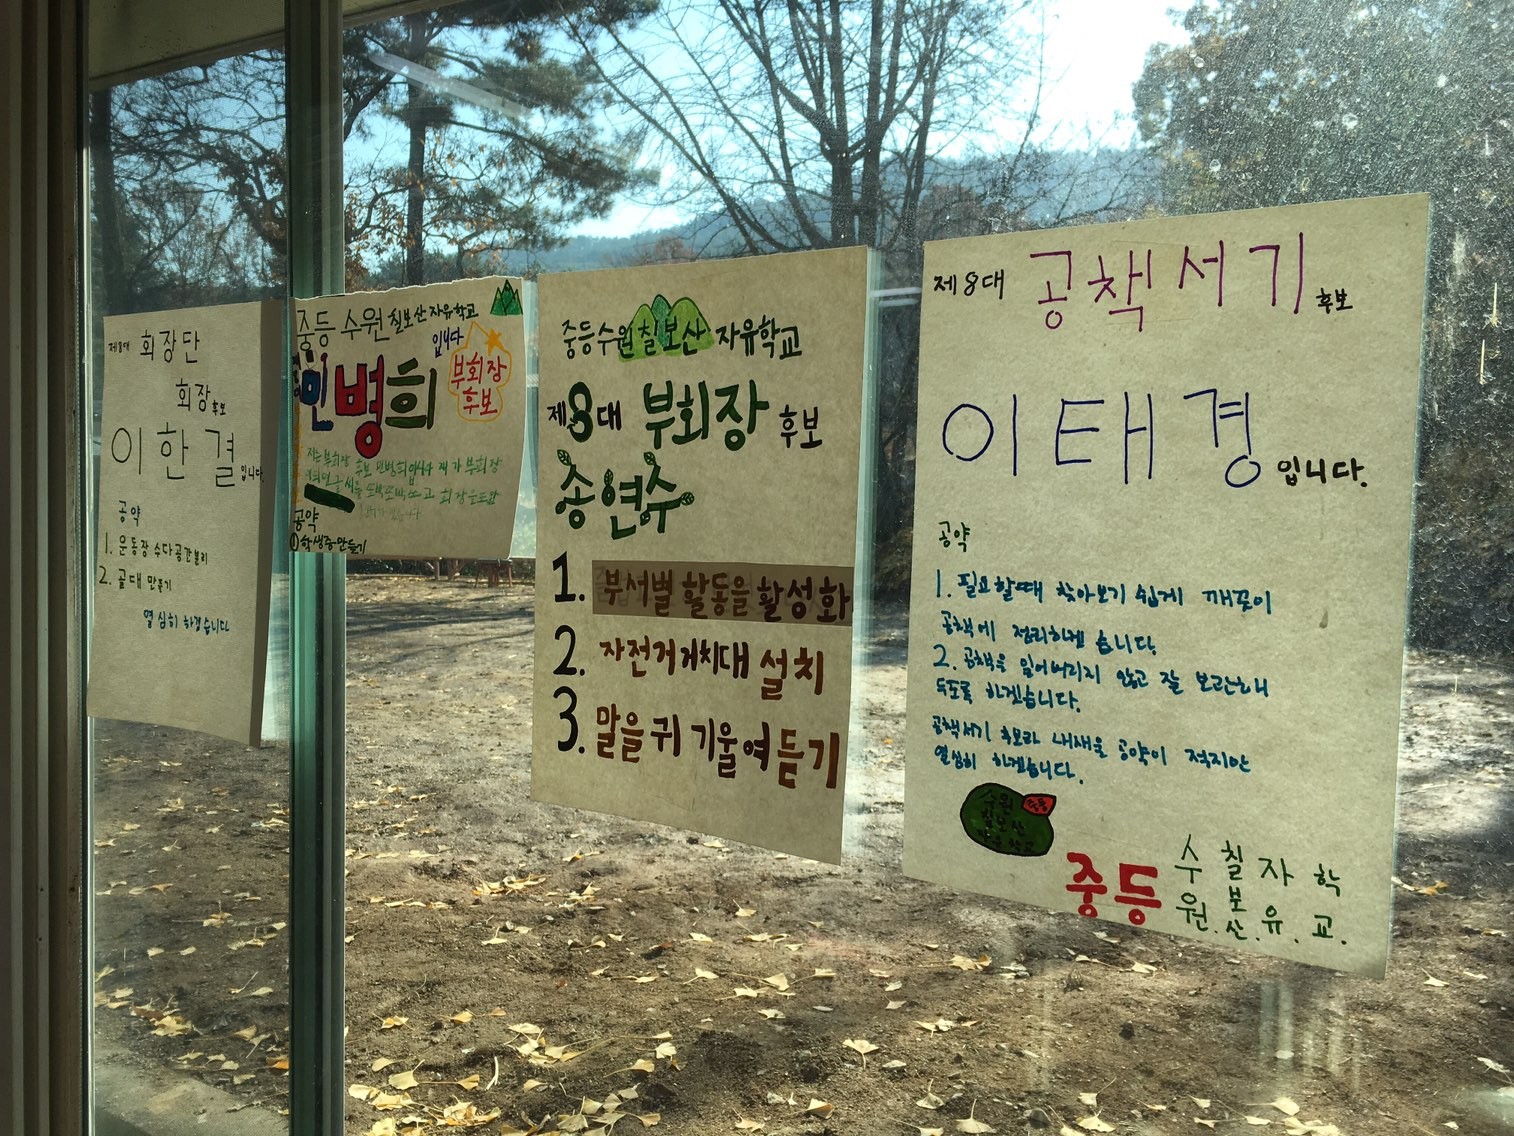 제8대 회장단
회장후보
이한결입니다
공약
1. 운동장 수다공간분리
2. 골대 만들기
열심히 하겠습니다
중등 수원 칠보산 자유학교
민병희 입니다
부회장
후보
저는 부회장 후보 민병희입니다 제가 부회장
공약
① 학생증만들기
중등수원칠보산 자유학교
제8대 부회장 후보
송연수
1. 부서별 활동을 활성화
2. 자전거거치대 설치
3. 말을 귀 기울여듣기
제8대 공책서기 후보
이태경입니다.
공약
1. 필요할때 찾아보기 쉽게 깨끗이
공책에 정리하게 습니다.
2. 공책을 잃어버리지 않고 잘 보관해
두도록 하겠습니다.
공책서기 후보라 내새울 공약이 적지만
열심히 하겠습니다.
수원 중등
칠보산
자유학교
중등 수원.칠보산.자유.학교.